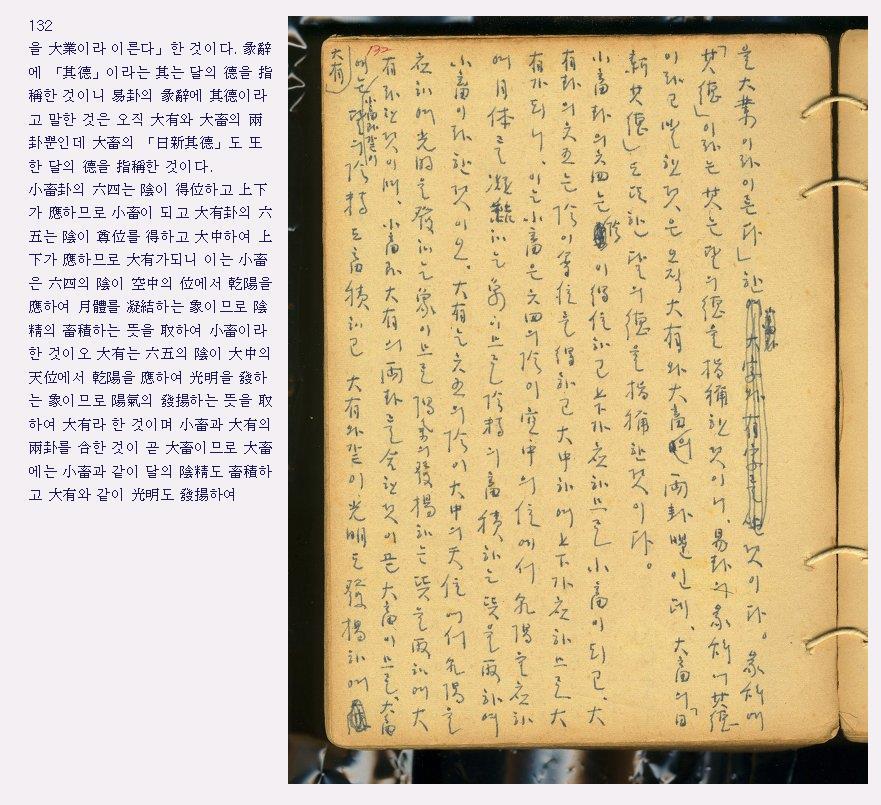 132
을 大業이라 이른다」한 것이다. 彖辭
에 「其德」이라는 其는 달의 德을 指
稱한 것이니 易卦의 彖辭에 其德이라
고 말한 것은 오직 大有와 大畜의 兩
卦뿐인데 大畜의 「日新其德」도 또
한 달의 德을 指稱한 것이다.
小畜卦의 六四는 陰이 得位하고 上下
가 應하므로 小畜이 되고 大有卦의 六
五는 陰이 尊位를 得하고 大中하여 上
下가 應하므로 大有가되니 이는 小畜
은 六四의 陰이 空中의 位에서 乾陽을
應하여 月體를 凝結하는 象이므로 陰
精의 畜積하는 뜻을 取하여 小畜이라
한 것이오 大有는 六五의 陰이 大中의
天位에서 乾陽을 應하여 光明을 發하
는 象이므로 陽氣의 發揚하는 뜻을 取
하여 大有라 한 것이며 小畜과 大有의
兩卦를 合한 것이 곧 大畜이므로 大畜
에는 小畜과 같이 달의 陰精도 畜積하
고 大有와 같이 光明도 發揚하여
을 大業이라 이른다」한 것이다。彖辭에
「其德」이라는 其는 달의 德을 指稱한 것이니、易卦의 彖辭에 其德
이라고 말한 것은 오직 大有와 大畜의 兩卦뿐인데、大畜의「日
新其德」도 또한 달의 德을 指稱한 것이다。
小畜卦의 六四는 陰이 得位하고 上下가 應하므로 小畜이 되고、大
有卦의 六五는 陰이 尊位를 得하고 大中하여 上下가 應하므로 大
有가 되니、이는 小畜은 六四의 陰이 空中의 位에서 乾陽을 應하
여 月体를 凝結하는 象이므로 陰精의 畜積하는 뜻을 取하여
小畜이라 한 것이오、大有는 六五의 陰이 大中의 天位에서 乾陽을
應하여 光明을 發하는 象이므로 陽氣의 發揚하는 뜻을 取하여 大
有라 한 것이며、小畜과 大有의 兩卦를 合한 것이 곧 大畜이므로、大畜
에는 小畜과 같이 달의 陰精도 畜積하고 大有와 같이 光明도 發揚하여
132
大有